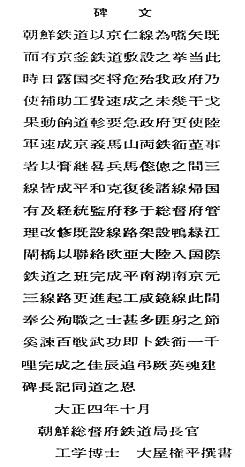 碑文
朝鮮鉄道以京仁線為嚆矢既
而有京釜鉄道敷設之挙当此
時日露国交将危殆我政府乃
使補助工費速成之未幾干戈
果動餉道軫要急政府更使陸
軍速成京義馬山両鉄銜董事
者以膏継晷兵馬倥偬之間三
線皆成平和克復後諸線帰国
有及経統監府移于総督府管
理改修既設線路架設鴨緑江
閘橋以聯絡欧亜大陸入国際
鉄道之班完成平南湖南京元
三線路更進起工咸鏡線此間
奉公殉職之士甚多匪躬之節
奚諫百戦武功即卜鉄銜一千
哩完成之佳辰追弔厥英魂建
碑長記同道之恩
大正四年十月
朝鮮総督府鉄道局長官
工学博士 大屋権平撰書